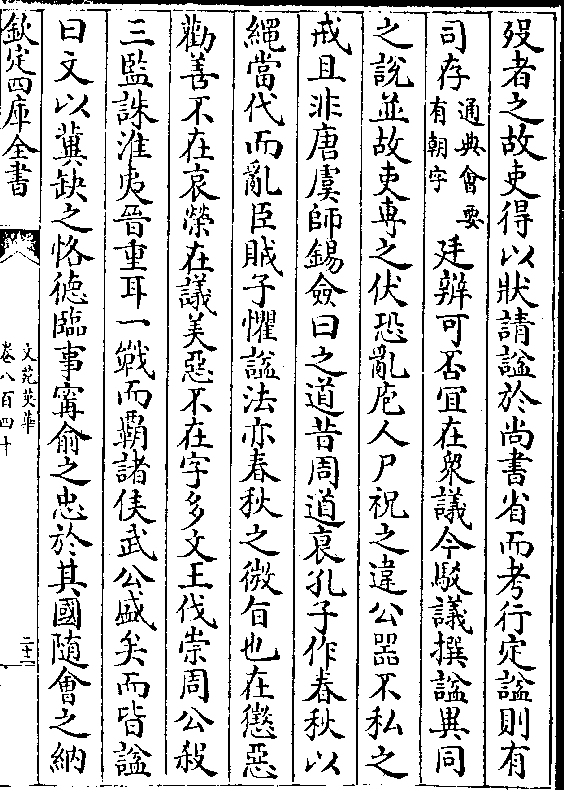 歿者之故吏得以狀請諡於尚書省而考行定諡則有
司存通典會要有朝字廷辯可否冝在衆議今駁議撰諡異同
之說並故吏専之伏恐亂庖人尸祝之違公噐不私之
戒且非唐虞師錫僉曰之道昔周道衰孔子作春秋以
繩當代而亂臣賊子懼諡法亦春秋之微㫖也在懲惡
勸善不在哀榮在議美惡不在字多文王伐崇周公殺
三監誅淮夷晉重耳一戰而霸諸侯武公盛矣而皆諡
曰文以冀缺之恪德臨事甯俞之忠於其國隨會之納
欽定四庫全書
文苑英華
卷八百四十
二十二